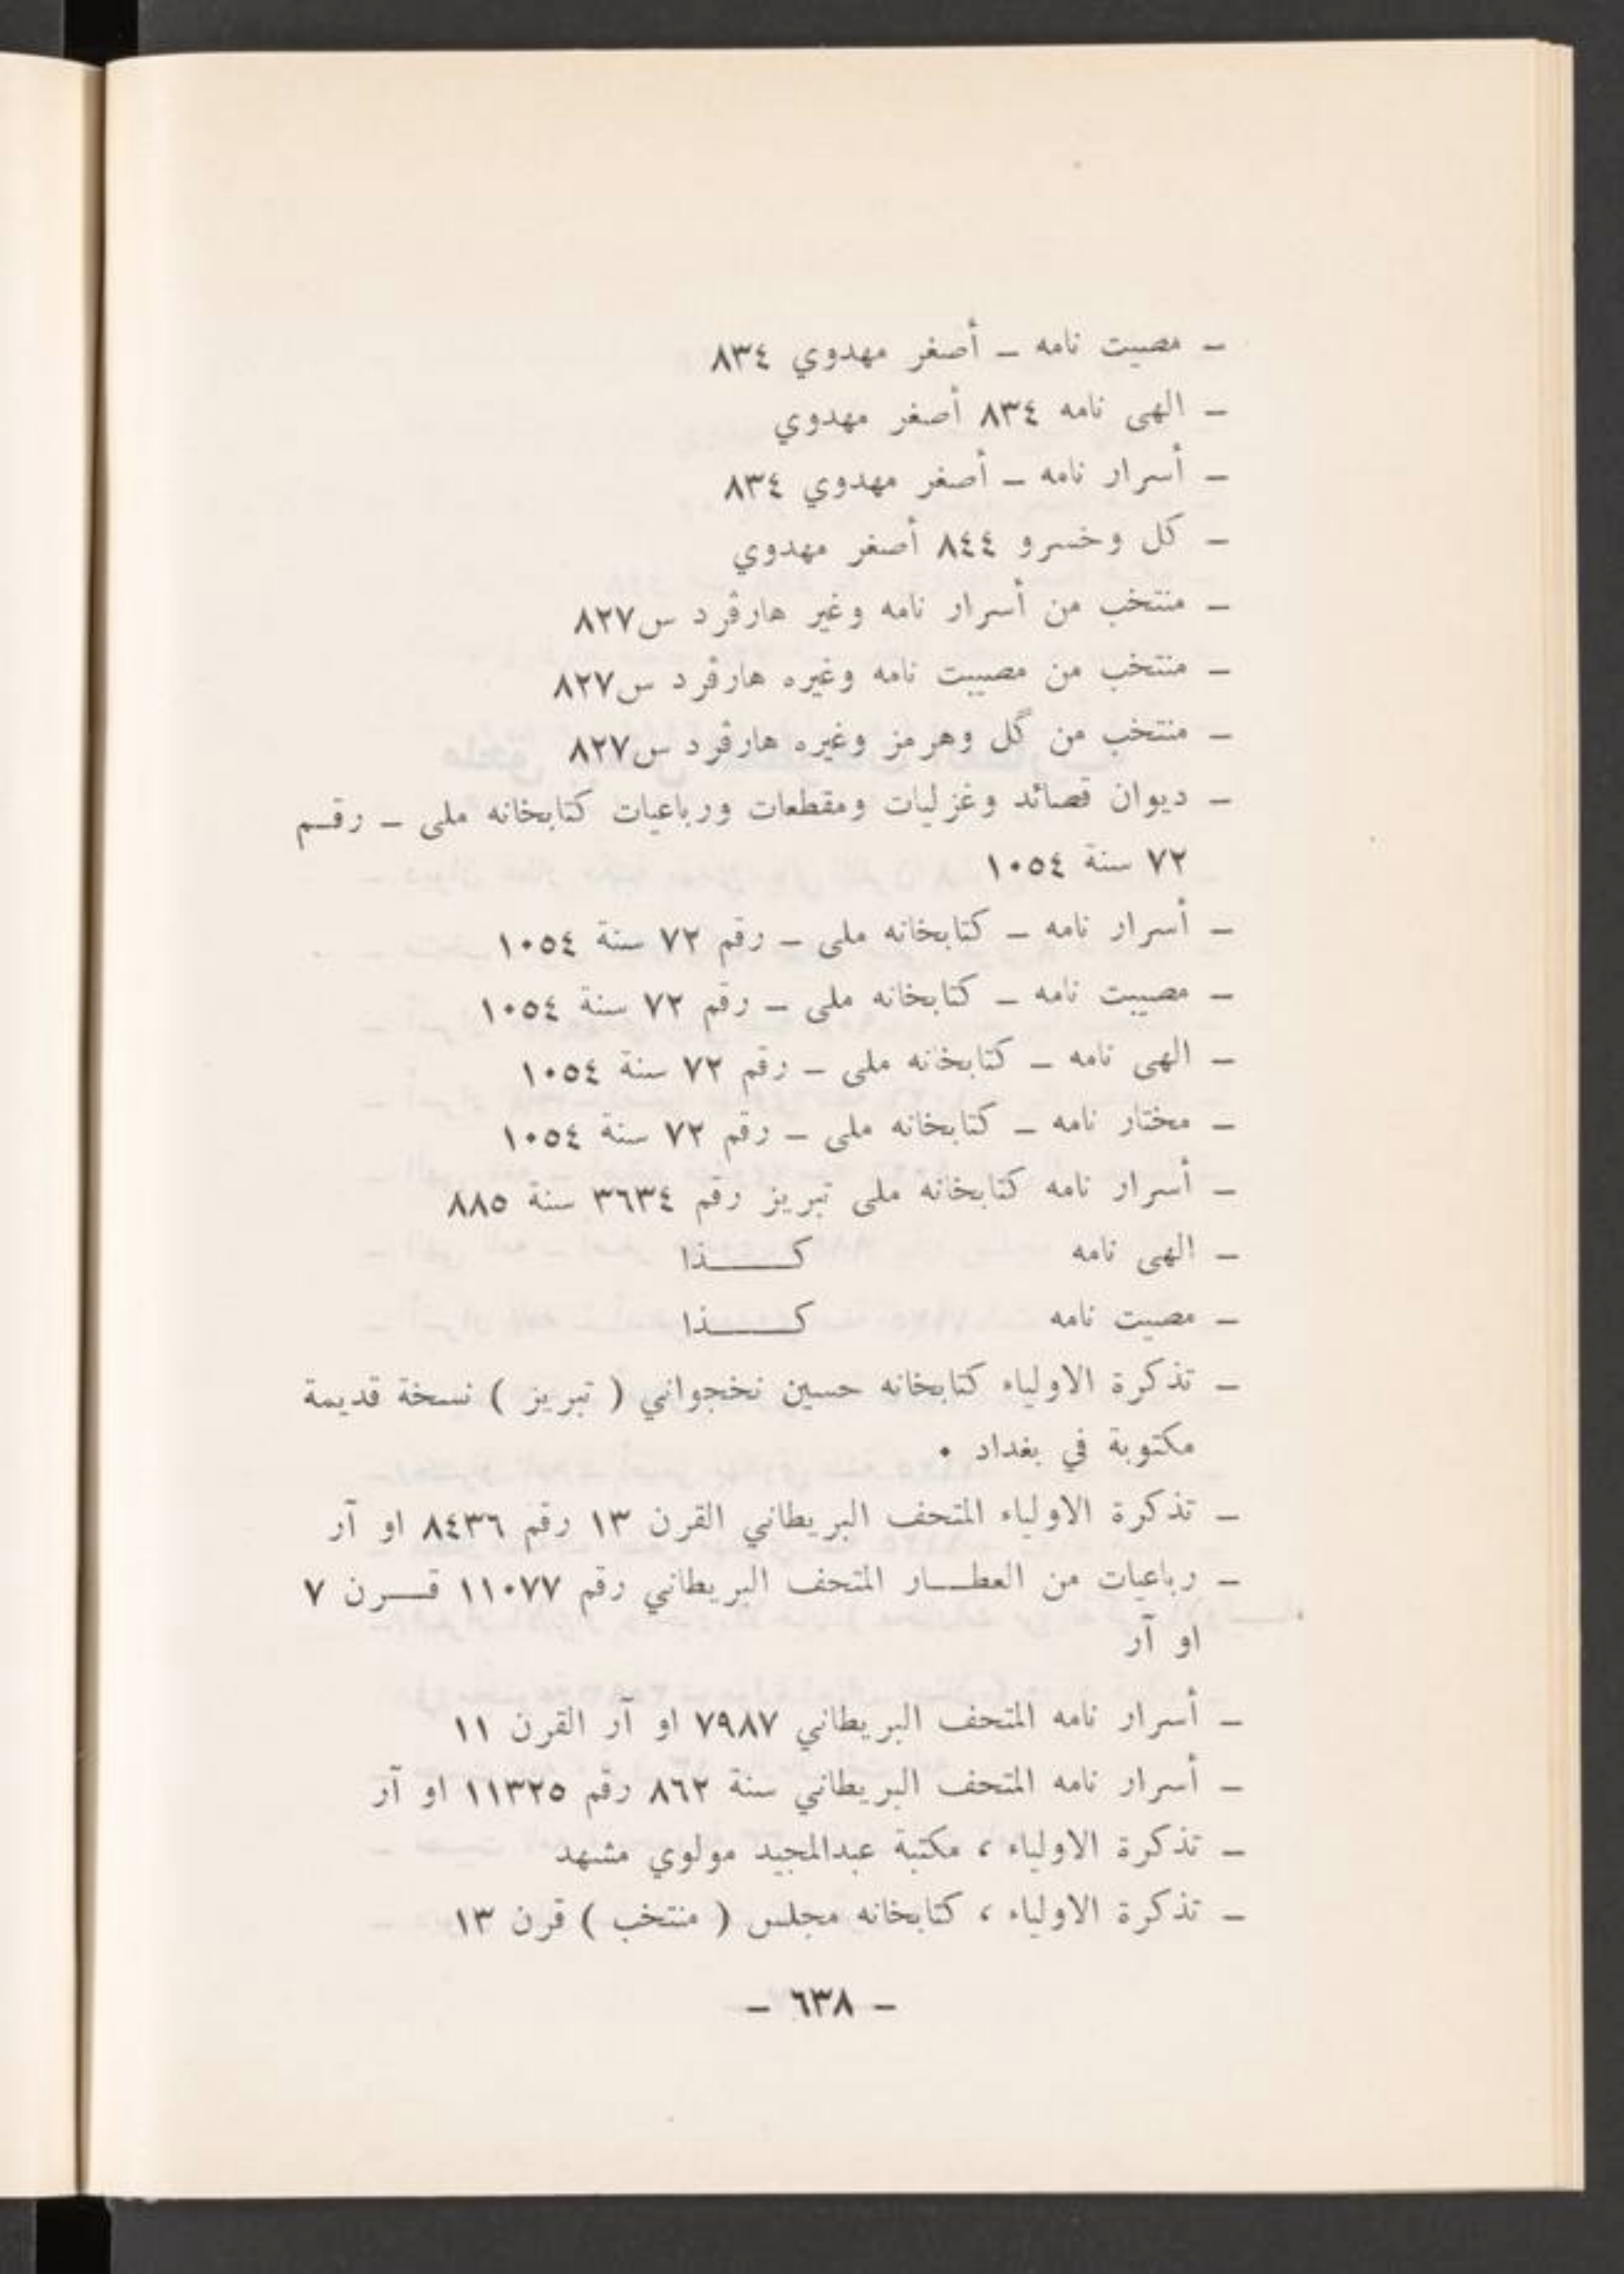 ـ مصيبت نامه ـ أصغر مهدوي ٨٣٤
ـ الهى نامه ٨٣٤ أصغر مهدوي
ـ أسرار نامه ـ أصغر مهدوي ٨٣٤
ـ كل وخسرو ٨٤٤ أصغر مهدوي
ـ منتخب من أسرار نامه وغير هارڤرد س٨٢٧
ـ منتخب من مصيبت نامه وغيره هارڤرد س٨٢٧
ـ منتخب من گل وهرمز وغيره هارڤرد س٨٢٧
ـ ديوان قصائد وغزليات ومقطعات ورباعيات كتابخانه ملى ـ رقم
٧٢ سنة ١٠٥٤
ـ أسرار نامه ـ كتابخانه ملى ـ رقم ٧٢ سنة ١٠٥٤
ـ مصيبت نامه ـ كتابخانه ملى ـ رقم ٧٢ سنة ١٠٥٤
ـ الهى نامه ـ كتابخانه ملى ـ رقم ٧٢ سنة ١٠٥٤
ـ مختار نامه ـ كتابخانه ملى ـ رقم ٧٢ سنة ١٠٥٤
ـ أسرار نامه كتابخانه ملى تبريز رقم ٣٦٣٤ سنة ٨٨٥
ـ الهى نامه كـــذا
ـ مصيبت نامه كـــذا
ـ تذكرة الاولياء كتابخانه حسين نخجواني ( تبريز ) نسخة قديمة
مكتوبة في بغداد ٠
ـ تذكرة الاولياء المتحف البريطاني القرن ١٣ رقم ٨٤٣٦ او آر
ـ رباعيات من العطـــار المتحف البريطاني رقم ١١٠٧٧ قـــرن ٧
او آر
ـ أسرار نامه المتحف البريطاني ٧٩٨٧ او آر القرن ١١
ـ أسرار نامه المتحف البريطاني سنة ٨٦٢ رقم ١١٣٢٥ او آر
ـ تذكرة الاولياء ، مكتبة عبدالمجيد مولوي مشهد
ـ تذكرة الاولياء ، كتابخانه مجلس ( منتخب ) قرن ١٣
ـ ٦٣٨ ـ